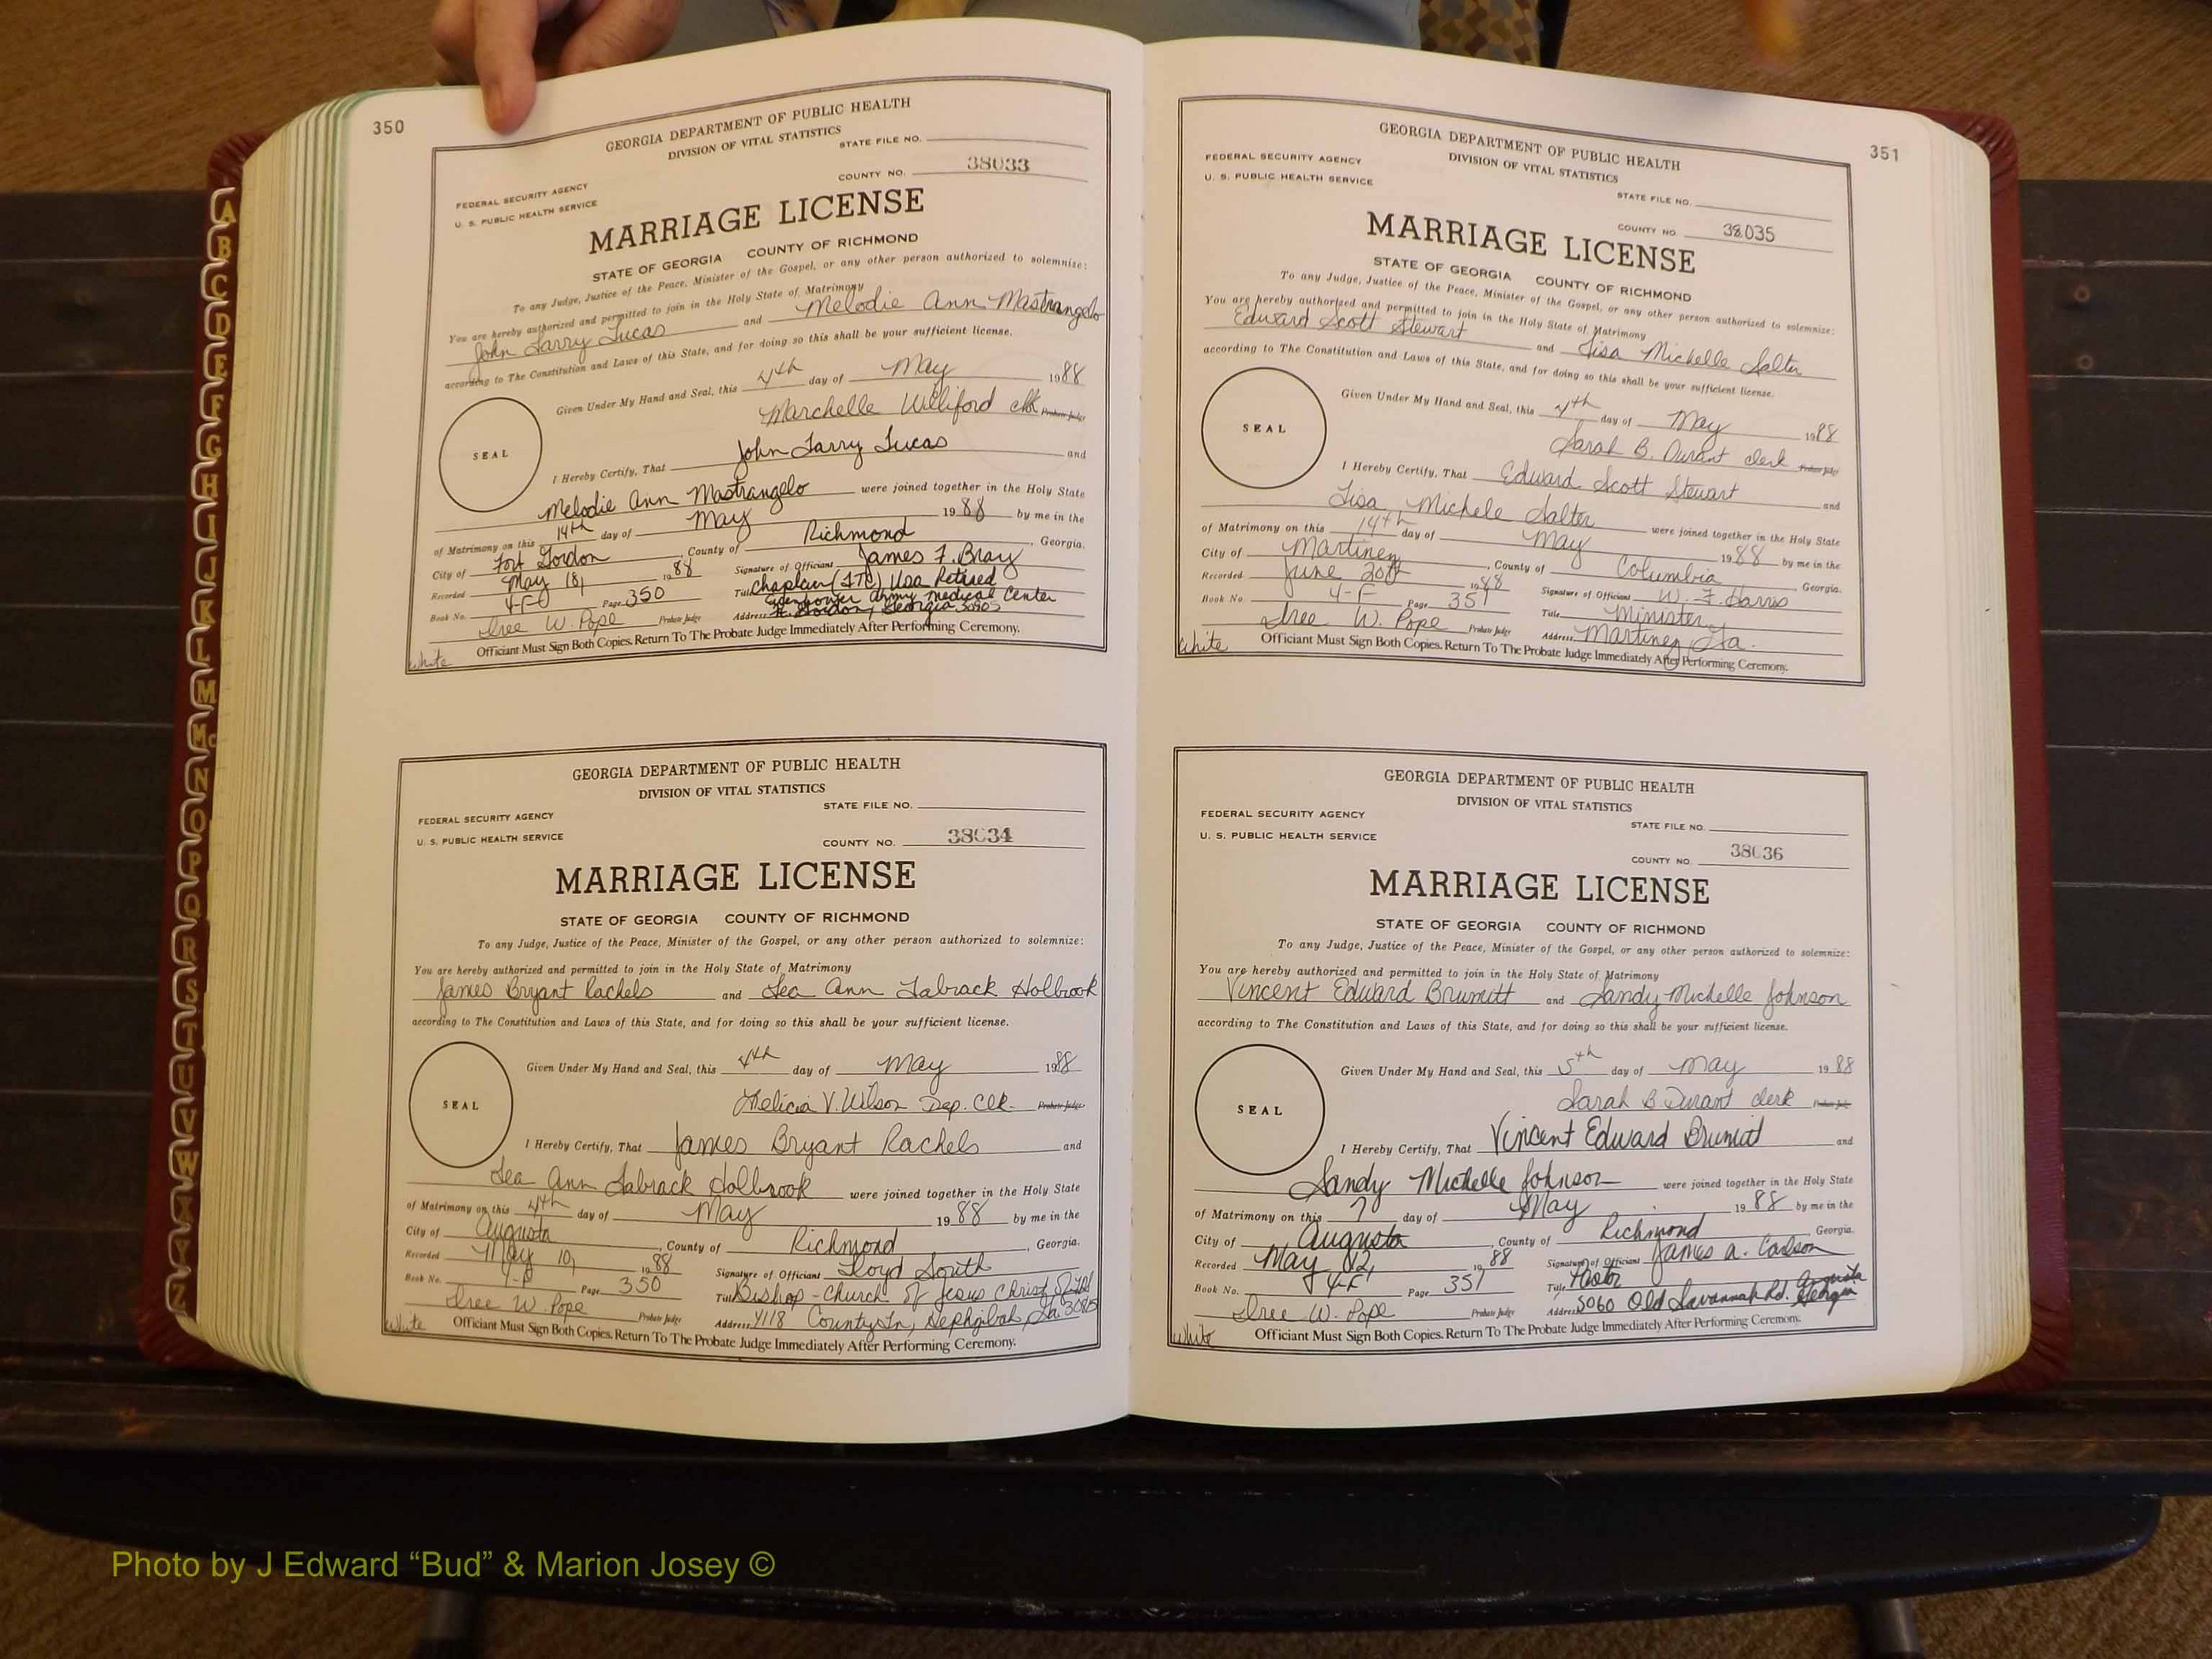 350
GEORGIA DEPARTMENT OF PUBLIC HEALTH
DIVISION OF VITAL STATISTICS
STATE FILE NO.
FEDERAL SECURITY AGENCY
U. S. PUBLIC HEALTH SERVICE
COUNTY NO. 38033
MARRIAGE LICENSE
STATE OF GEORGIA COUNTY OF RICHMOND
To any Judge, Justice of the Peace, Minister of the Gospel, or any other person authorized to solemnize:
You are hereby authorized and permitted to join in the Holy State of Matrimony
John Larry Lucas and Melodie Ann Mastrangelo
according to The Constitution and Laws of this State, and for doing so this shall be your sufficient license.
Given Under My Hand and Seal, this 4th day of May 1988
Marchelle Williford clk Probate Judge
SEAL
I Hereby Certify, That John Larry Lucas and
Melodie Ann Mastrangelo were joined together in the Holy State
of Matrimony on this 14th day of May 1988 by me in the
City of Fort Gordon, County of Richmond, Georgia.
Recorded May 18, 1988 Signature of Officiant James F. Bray
Book No. 4-F Page 350 Title Chaplain (LTC) USA Retired
Eisenhower Army Medical Center
Dree W. Pope Probate Judge Address Ft. Gordon, Georgia 30905
Officiant Must Sign Both Copies. Return To The Probate Judge Immediately After Performing Ceremony.
White
GEORGIA DEPARTMENT OF PUBLIC HEALTH
DIVISION OF VITAL STATISTICS
STATE FILE NO.
FEDERAL SECURITY AGENCY
U. S. PUBLIC HEALTH SERVICE
COUNTY NO. 38034
MARRIAGE LICENSE
STATE OF GEORGIA COUNTY OF RICHMOND
To any Judge, Justice of the Peace, Minister of the Gospel, or any other person authorized to solemnize:
You are hereby authorized and permitted to join in the Holy State of Matrimony
James Bryant Rachels and Lea Ann Labrack Holbrook
according to The Constitution and Laws of this State, and for doing so this shall be your sufficient license.
Given Under My Hand and Seal, this 4th day of May 1988
Felicia V. Wilson Dep. Clk. Probate Judge
SEAL
I Hereby Certify, That James Bryant Rachels and
Lea Ann Labrack Holbrook were joined together in the Holy State
of Matrimony on this 4th day of May 1988 by me in the
City of Augusta, County of Richmond, Georgia.
Recorded May 10, 1988 Signature of Officiant Lloyd South
Book No. 4-F Page 350 Title Bishop - Church of Jesus Christ of LDS
Dree W. Pope Probate Judge Address 4118 County Ln, Hephzibah, Ga 30815
Officiant Must Sign Both Copies. Return To The Probate Judge Immediately After Performing Ceremony.
White
351
GEORGIA DEPARTMENT OF PUBLIC HEALTH
DIVISION OF VITAL STATISTICS
FEDERAL SECURITY AGENCY
U. S. PUBLIC HEALTH SERVICE
STATE FILE NO.
COUNTY NO. 38035
MARRIAGE LICENSE
STATE OF GEORGIA COUNTY OF RICHMOND
To any Judge, Justice of the Peace, Minister of the Gospel, or any other person authorized to solemnize:
You are hereby authorized and permitted to join in the Holy State of Matrimony
Edward Scott Stewart and Lisa Michelle Salter
according to The Constitution and Laws of this State, and for doing so this shall be your sufficient license.
Given Under My Hand and Seal, this 4th day of May 1988
Sarah B. Durant clerk Probate Judge
SEAL
I Hereby Certify, That Edward Scott Stewart and
Lisa Michele Salter were joined together in the Holy State
of Matrimony on this 14th day of May 1988 by me in the
City of Martinez, County of Columbia, Georgia.
Recorded June 20th 1988 Signature of Officiant W. F. Harris
Book No. 4-F Page 351 Title Minister
Dree W. Pope Probate Judge Address Martinez Ga.
Officiant Must Sign Both Copies. Return To The Probate Judge Immediately After Performing Ceremony.
White
GEORGIA DEPARTMENT OF PUBLIC HEALTH
DIVISION OF VITAL STATISTICS
FEDERAL SECURITY AGENCY
U. S. PUBLIC HEALTH SERVICE
STATE FILE NO.
COUNTY NO. 38036
MARRIAGE LICENSE
STATE OF GEORGIA COUNTY OF RICHMOND
To any Judge, Justice of the Peace, Minister of the Gospel, or any other person authorized to solemnize:
You are hereby authorized and permitted to join in the Holy State of Matrimony
Vincent Edward Brumitt and Sandy Michelle Johnson
according to The Constitution and Laws of this State, and for doing so this shall be your sufficient license.
Given Under My Hand and Seal, this 5th day of May 1988
Sarah B Durant clerk Probate Judge
SEAL
I Hereby Certify, That Vincent Edward Brumitt and
Sandy Michelle Johnson were joined together in the Holy State
of Matrimony on this 7 day of May 1988 by me in the
City of Augusta, County of Richmond, Georgia.
Recorded May 12, 1988 Signature of Officiant James A. Carlson
Book No. 4-F Page 351 Title Pastor
Dree W. Pope Probate Judge Address 3060 Old Savannah Rd. Augusta Georgia
Officiant Must Sign Both Copies. Return To The Probate Judge Immediately After Performing Ceremony.
White
A
B
C
D
E
F
G
H
I
J
K
L
M
Mc
N
O
P
Q
R
S
T
U
V
W
X
Y
Z
Photo by J Edward “Bud” & Marion Josey ©